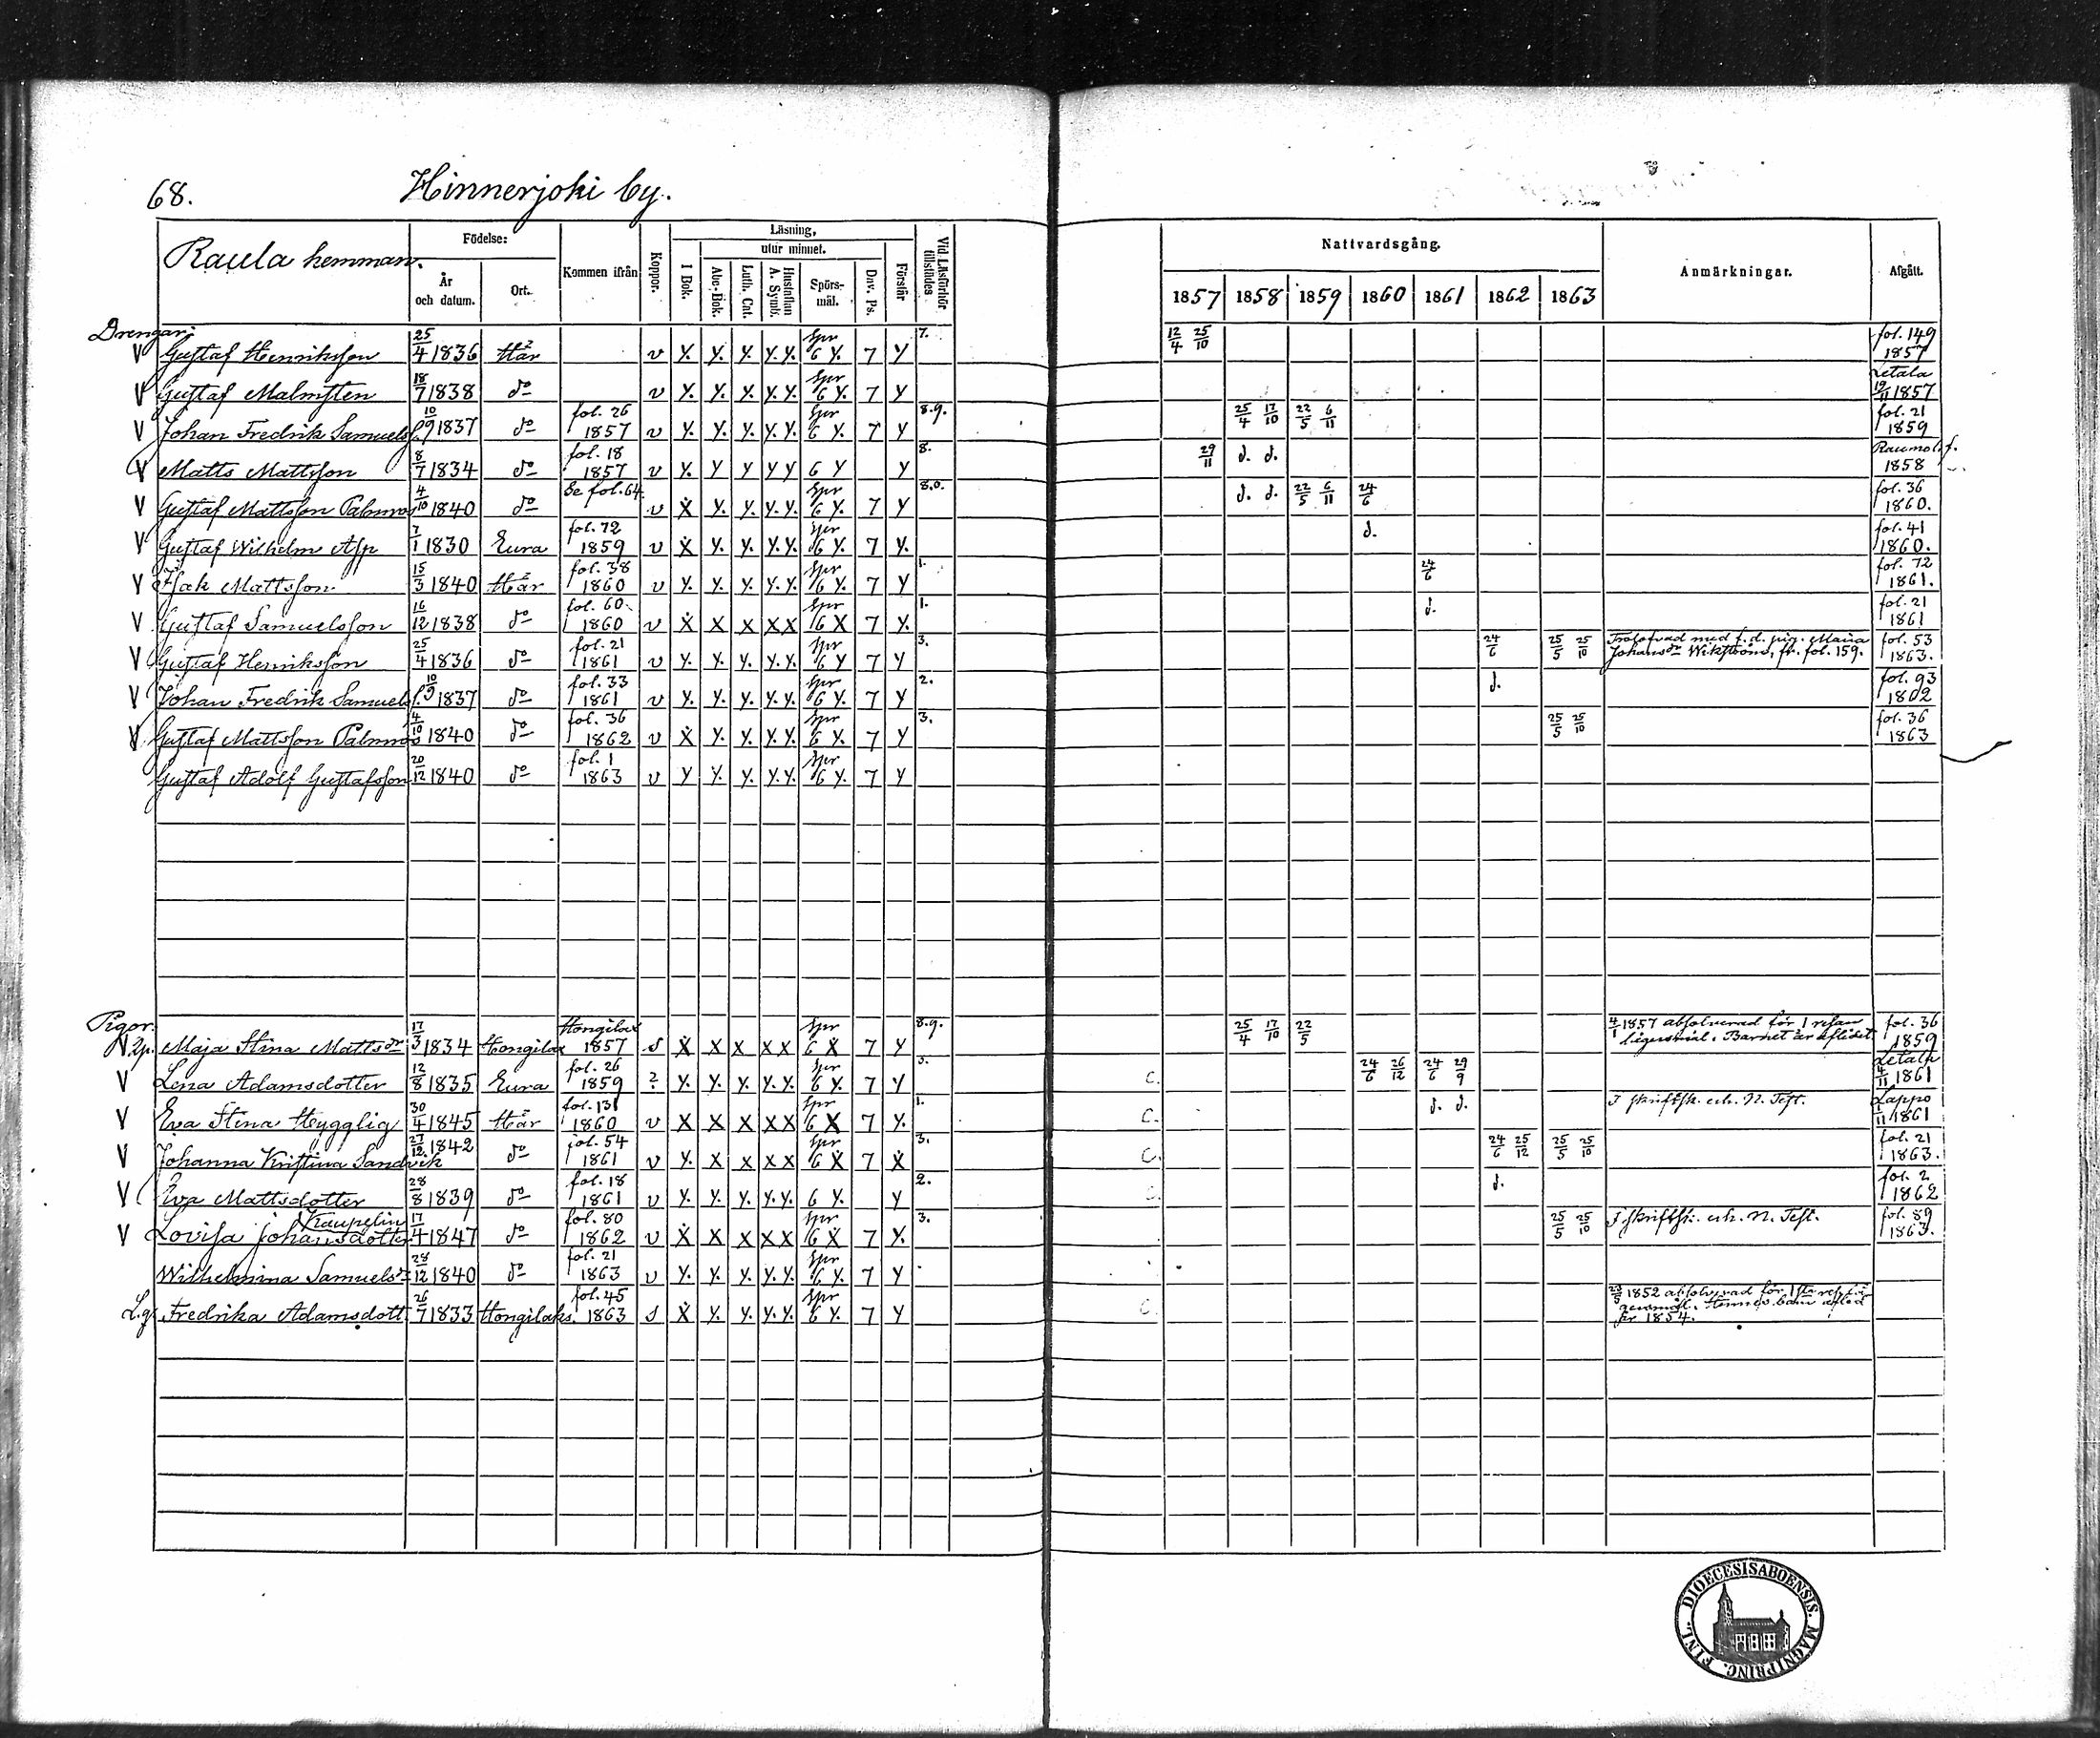 68. Hinnerjoki by.
Raula hemman.
Födelse:
År och datum.
Ort.
Kommen ifrån
Koppor.
Läsning,
I Bok.
utur minnet.
Abc-Bok.
Luth. Cat.
Hustaflan A. Symb.
Spörs-mål.
Dav. Ps.
Förstår
Vid Läsförhör tillstädes
Nattvardsgång.
1857 1858 1859 1860 1861 1862 1863
Anmärkningar.
Afgått.
Drengar:
V Gustaf Henriksson 25/4 1836 Här v y. y. y. y. y. Spr 6 y. 7 y 7. 12/4 25/10 fol. 149 1857
V Gustaf Malmsten 18/7 1838 do v y. y. y. y. y. Spr 6 y. 7 y Letala 19/11 1857
V Johan Fredrik Samuelss. 10/9 1837 do fol. 26 1857 v y. y. y. y. y. Spr 6 y. 7 y 8.9. 25/4 17/10 22/5 6/11 fol. 21 1859
V Matts Mattsson 8/7 1834 do fol. 18 1857 v y. y y y y 6 y y 8. 29/11 d. d. Raumo 1858
V Gustaf Mattsson Palmros 4/10 1840 do Se fol. 64. v x y. y. y. y. Spr 6 y. 7 y 8.0. d. d. 22/5 6/11 24/6 fol. 36 1860.
V Gustaf Wilhelm Asp 7/1 1830 Eura fol. 72 1859 v x y. y. y. y. Spr 6 y. 7 y. d. fol. 41 1860.
V Isak Mattsson 15/3 1840 Här fol. 38 1860 v y. y. y. y. y. Spr 6 y. 7 y 1. 24/6 fol. 72 1861.
V Gustaf Samuelsson 16/12 1838 do fol. 60. 1860 v x x x x x Spr 6 x 7 y. 1. d. fol. 21 1861
V Gustaf Henriksson 25/4 1836 do fol. 21 1861 v y. y. y. y. y. Spr 6 y 7 y 3. 24/6 25/5 25/10 Trolofvad med f. d. pig. Maria Johansdr Wikström, fr. fol. 159. fol. 53 1863.
V Johan Fredrik Samuelss. 10/9 1837 do fol. 33 1861 v y. y. y. y. y. Spr 6 y. 7 y 2. d. fol. 93 1862
V Gustaf Mattsson Palmros 4/10 1840 do fol. 36 1862 v x y. y. y. y. Spr 6 y. 7 y 3. 25/5 25/10 fol. 36 1863
Gustaf Adolf Gustafsson 20/12 1840 do fol. 1 1863 v y y. y. y. y. Spr 6 y. 7 y
Pigor.
V 2p. Maja Stina Mattsdr 17/3 1834 Hongilax Hongilax 1857 s x x x x x Spr 6 x 7 y 8.9. 25/4 17/10 22/5 4/1 1857 absolverad för 1 resan lägersmål. Barnet är aflidet. fol. 36 1859
V Lena Adamsdotter 12/8 1835 Eura fol. 26 1859 ? y. y. y. y. y. Spr 6 y. 7 y C. 24/6 26/12 24/6 29/9 Letala 4/11 1861
V Eva Stina Heygglig 30/4 1845 Här fol. 131 1860 v x x x x x Spr 6 x 7 y. 1. C. d. d. I skriftsk. erh. N. Test. Lappo 1/11 1861
V Johanna Kristina Sandvik 27/12 1842 do fol. 54 1861 v y. x x x x Spr 6 x 7 x 3. C. 24/6 25/12 25/5 25/10 fol. 21 1863.
V Eva Mattsdotter 28/8 1839 do fol. 18 1861 v y. y. y. y. y. 6 y. y 2. d. fol. 2 1862
V Lovisa Johansdotter Kaupelin 17/4 1847 do fol. 80 1862 v x x x x x Spr 6 x 7 y. 3. 25/5 25/10 I skriftsk. erh. N. Test. fol. 89 1863.
Wilhelmina Samuelsdr 28/12 1840 do fol. 21 1863 v y. y. y. y. y. Spr 6 y. 7 y
L.g. Fredrika Adamsdott. 26/7 1833 Hongilaks. fol. 45 1863 s x y. y. y. y. Spr 6 y. 7 y C. 1852 absolverad för 1sta resan Hennes barn afled år 1854.
FINL. DIOECESIS ABOENSIS. MAGNI PRINC.